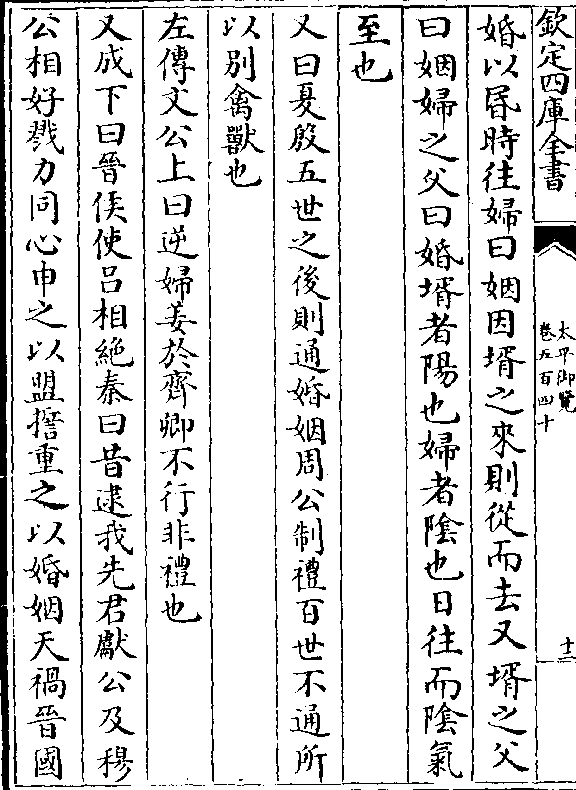 欽定四庫全書
太平御覽
卷五百四十
十二
婚以昬時往婦曰姻因壻之來則從而去又壻之父
曰姻婦之父曰婚壻者陽也婦者陰也日往而陰氣
至也
又曰夏殷五世之後則通婚姻周公制禮百世不通所
以别禽獸也
左傳文公上曰逆婦姜於齊卿不行非禮也
又成下曰晉侯使吕相絶秦曰昔逮我先君獻公及穆
公相好戮力同心申之以盟誓重之以婚姻天禍晉國